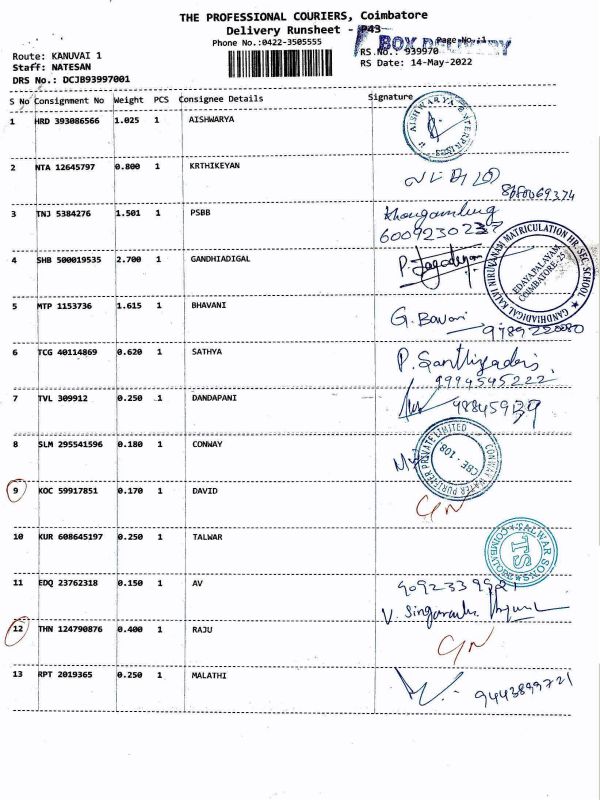 THE PROFESSIONAL COURIERS, Coimbatore
Delivery Runsheet - P43
Phone No.:0422-3505555
Page No.:1
BOX DELIVERY
Route: KANUVAI 1
RS.No.: 939970
Staff: NATESAN
RS Date: 14-May-2022
DRS No.: DCJB93997001
S No Consignment No Weight PCS Consignee Details Signature
1 HRD 393086566 1.025 1 AISHWARYA
2 NTA 12645797 0.800 1 KRTHIKEYAN
3 TNJ 5384276 1.501 1 PSBB
6009230237
4 SHB 500019535 2.700 1 GANDHIADIGAL
P. Jagadeesan
GANDHIADIGAL KALVI NIRUVANAM MATRICULATION HR. SEC. SCHOOL
EDAYAPALAYAM
COIMBATORE-25
5 MTP 1153736 1.615 1 BHAVANI
G. Bavani
9789250080
6 TCG 40114869 0.620 1 SATHYA
P. Santhiyadevi
9994545222
7 TVL 309912 0.250 1 DANDAPANI
8 SLM 295541596 0.180 1 CONWAY
CONWAY WATER PURIFIER PRIVATE LIMITED
CBE - 108
9 KOC 59917851 0.170 1 DAVID
10 KUR 608645197 0.250 1 TALWAR
TALWAR SONS
COIMBATORE
TS
11 EDQ 23762318 0.150 1 AV
12 THN 124790876 0.400 1 RAJU
13 RPT 2019365 0.250 1 MALATHI
9443899721